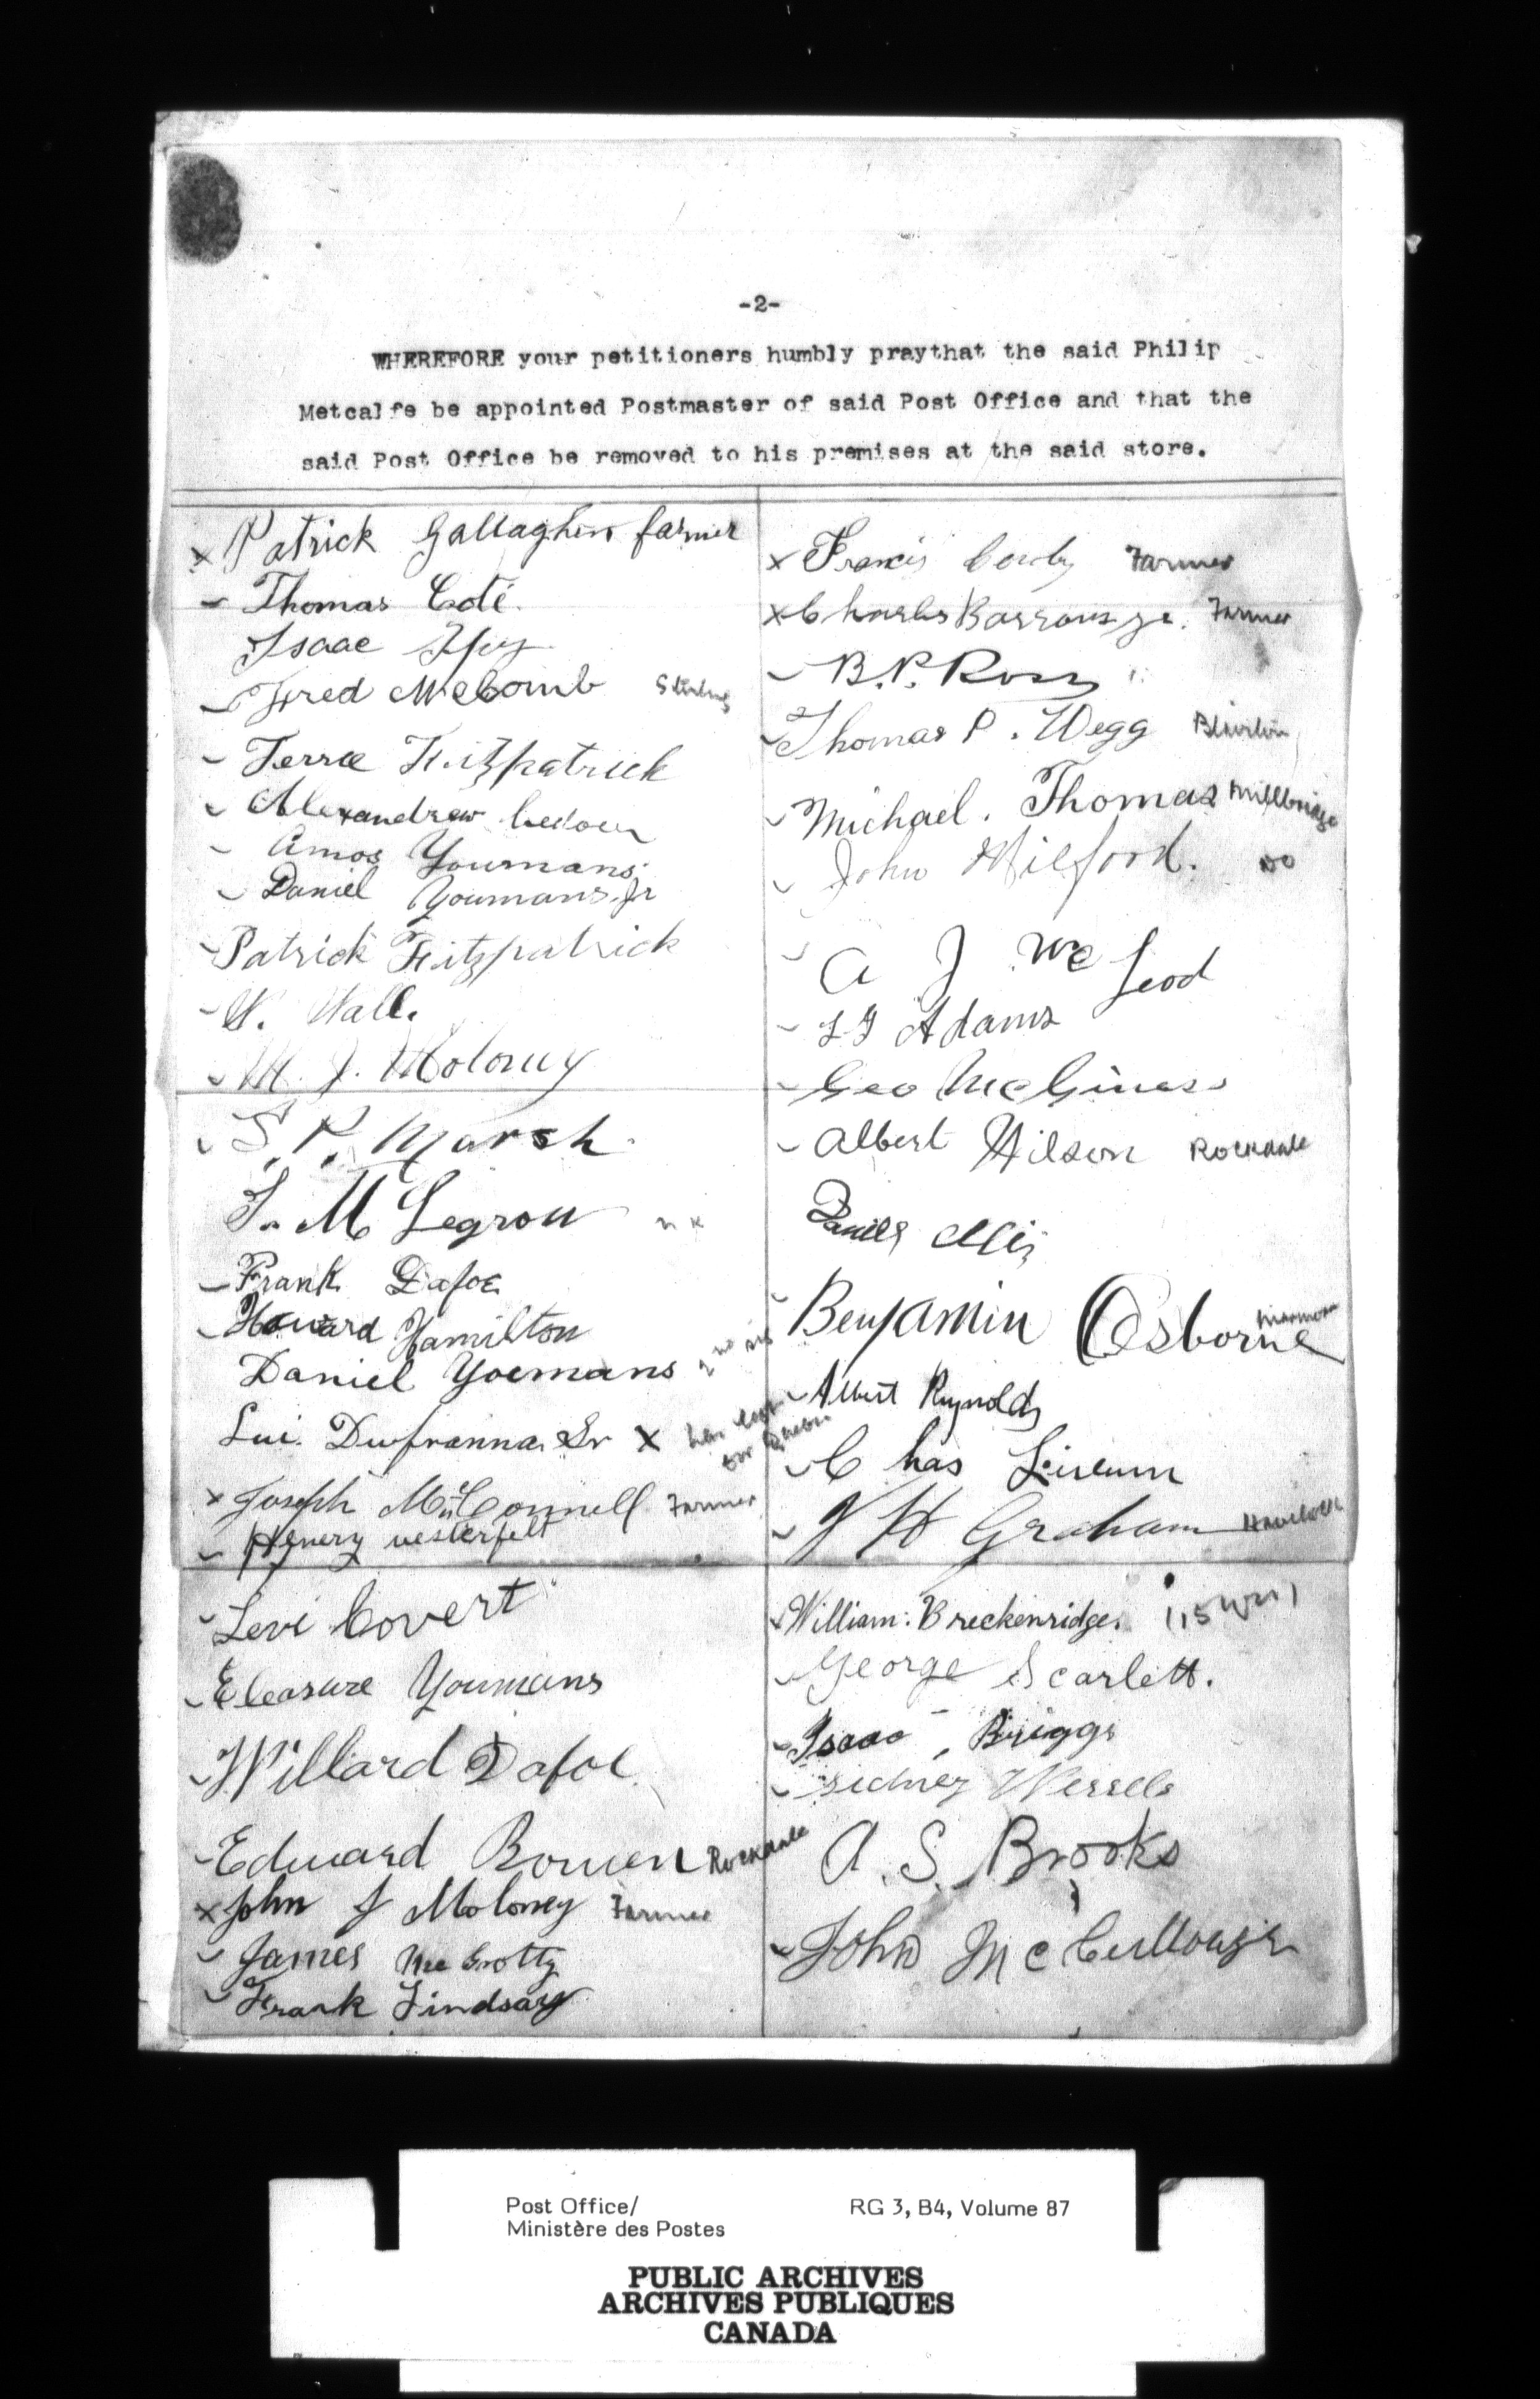 -2-
WHEREFORE your petitioners humbly praythat the said Philip
Metcalfe be appointed Postmaster of said Post Office and that the
said Post Office be removed to his premises at the said store.
x Patrick Gallagher farmer
Thomas Coté.
Isaac
Fred McComb Stirling
Terrce Fitzpatrick
Alexandrew
Amos Youmans
Daniel Youmans Jr
Patrick Fitzpatrick
W. Wall.
M. J. Moloney
S. P. Marsh.
T. M Legrow
Frank Dafoe
Howard Hamilton
Daniel Yoemans
Lui. Dufranna Sr X
x Joseph McConnell Farmer
Henery vesterfelt
Levi Covert
Eleasure Youmans
Willard Dafoe
Edward Bowen Rockdale
x John J Moloney Farmer
James McGrotty
Frank Lindsay
x Francis Farmer
x Charles Barrons jr. Farmer
B.P. Ross
Thomas P. Wegg Blairton
Michael. Thomas Millbridge
John Wilford. DO
A J McLeod
Adams
Geo McGiness
Albert Wilson Rockdale
Daniel Ellis
Benjamin Osborne Marmora
Albert Reynolds
Chas
J H Graham Havelock
William: Breckenridge.
George Scarlett.
Isaac Briggs
Sidney Wessels
A. S. Brooks
John McCullough
Post Office/
Ministère des Postes
RG 3, B4, Volume 87
PUBLIC ARCHIVES
ARCHIVES PUBLIQUES
CANADA